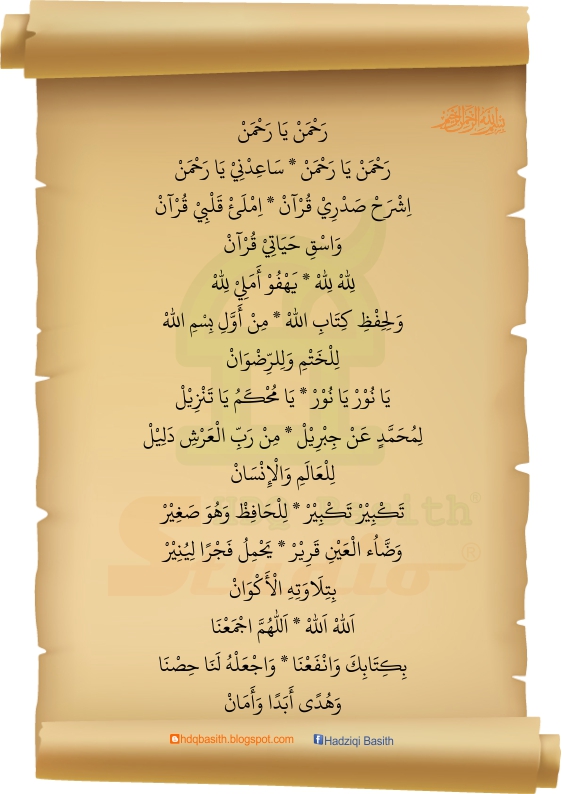 بسم الله الرحمن الرحيم
رَحْمَنْ يَا رَحْمَنْ
رَحْمَنْ يَا رَحْمَنْ * سَاعِدْنِيْ يَا رَحْمَنْ
اِشْرَحْ صَدْرِيْ قُرْآنْ * اِمْلَئْ قَلْبِيْ قُرْآنْ
وَاسْقِ حَيَاتِيْ قُرْآنْ
لِلّٰهْ لِلّٰهْ * يَهْفُوْ أَمَلِيْ لِلّٰهْ
وَلِحِفْظِ كِتَابِ اللّٰهْ * مِنْ أَوَّلِ بِسْمِ اللّٰهْ
لِلْخَتْمِ وَلِلرِّضْوَانْ
يَا نُوْرْ يَا نُوْرْ * يَا مُحْكَمُ يَا تَنْزِيْلْ
لِمُحَمَّدٍ عَنْ جِبْرِيْلْ * مِنْ رَبِّ الْعَرْشِ دَلِيْلْ
لِلْعَالَمِ وَالْإِنْسَانْ
تَكْبِيْرْ تَكْبِيْرْ * لِلْحَافِظْ وَهُوَ صَغِيْرْ
وَضَّاءُ الْعَيْنِ قَرِيْرْ * يَحْمِلُ فَجْرًا لِيُنِيْرْ
بِتِلَاوَتِهِ الْأَكْوَانْ
اَللّٰهْ اَللّٰهْ * اَللّٰهُمَّ اجْمَعْنَا
بِكِتَابِكَ وَانْفَعْنَا * وَاجْعَلْهُ لَنَا حِصْنَا
وَهُدًى أَبَدًا وَأَمَانْ
Hdq Basith®
Studio®
hdqbasith.blogspot.com Hadziqi Basith